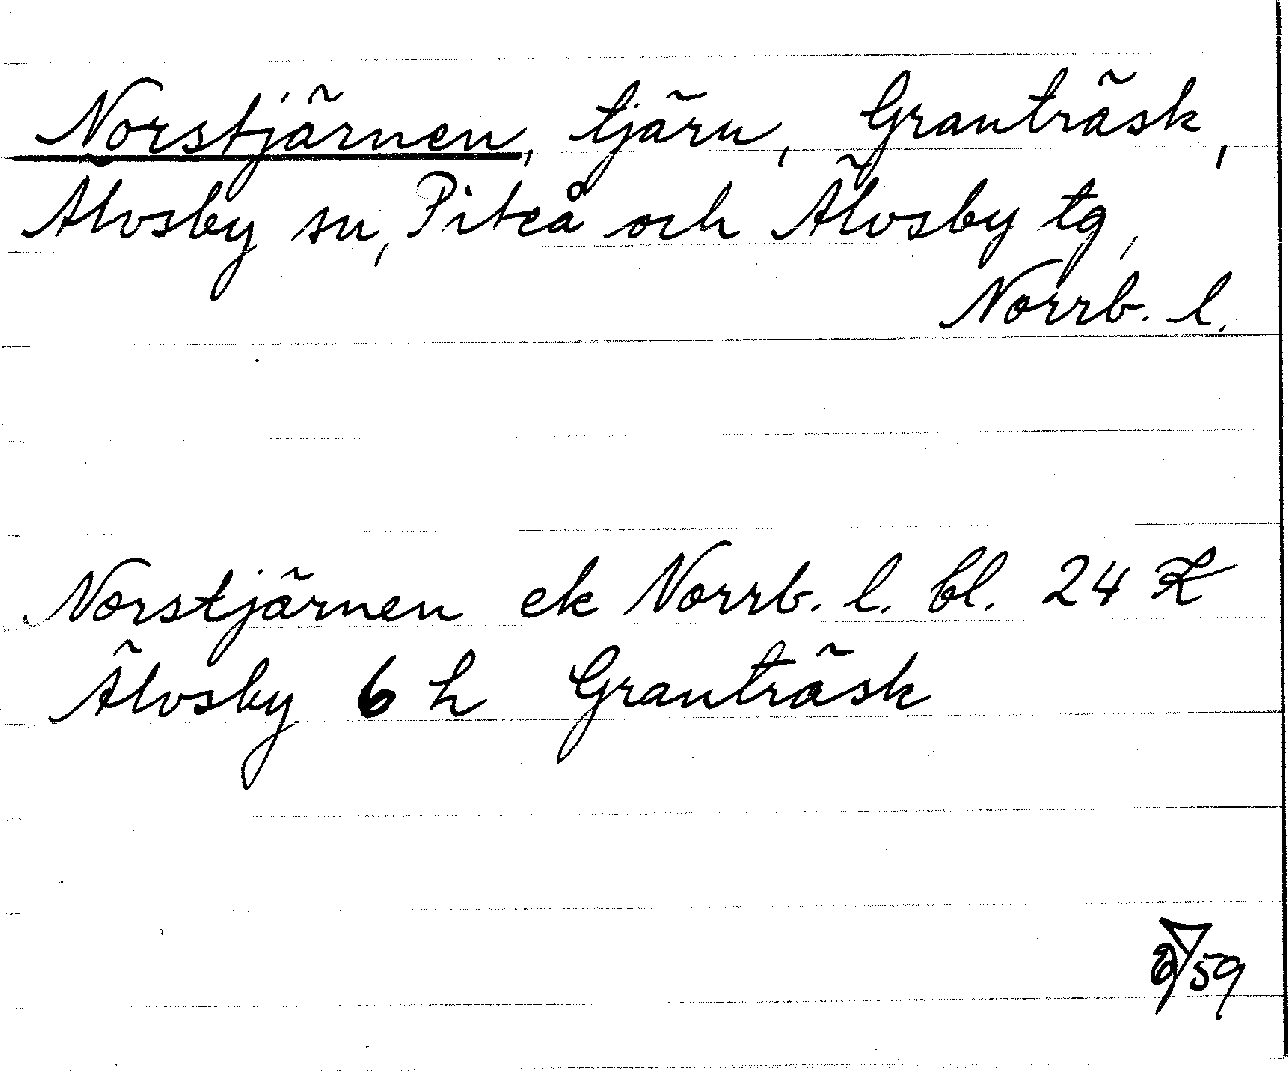 Norstjärnen, tjärn, Granträsk,
Älvsby sn, Piteå och Älvsby tg,
Norrb. l.
Norstjärnen ek Norrb. l. bl. 24
Älvsby 6 h Granträsk
59